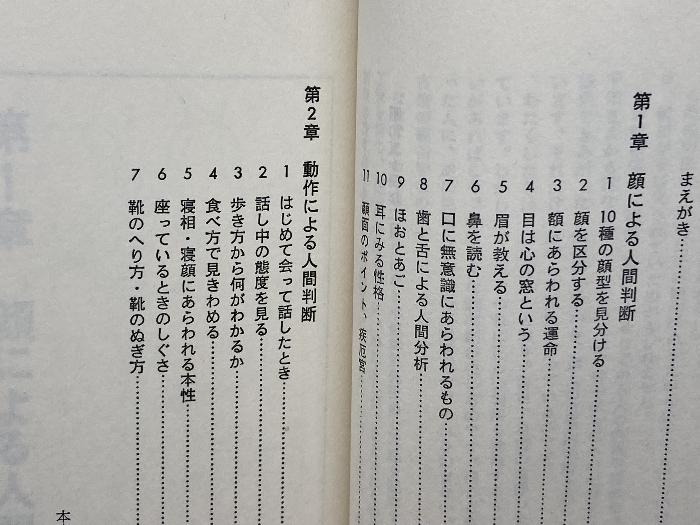 まえがき
第1章 顔による人間判断
1 10種の顔型を見分ける
2 顔を区分する
3 額にあらわれる運命
4 目は心の窓という
5 眉が教える
6 鼻を読む
7 口に無意識にあらわれるもの
8 歯と舌による人間分析
9 ほおとあご
10 耳にみる性格
11 顔面のポイント、疾厄宮
第2章 動作による人間判断
1 はじめて会って話したとき
2 話し中の態度を見る
3 歩き方から何がわかるか
4 食べ方で見きわめる
5 寝相・寝顔にあらわれる本性
6 座っているときのしぐさ
7 靴のへり方・靴のぬぎ方
本